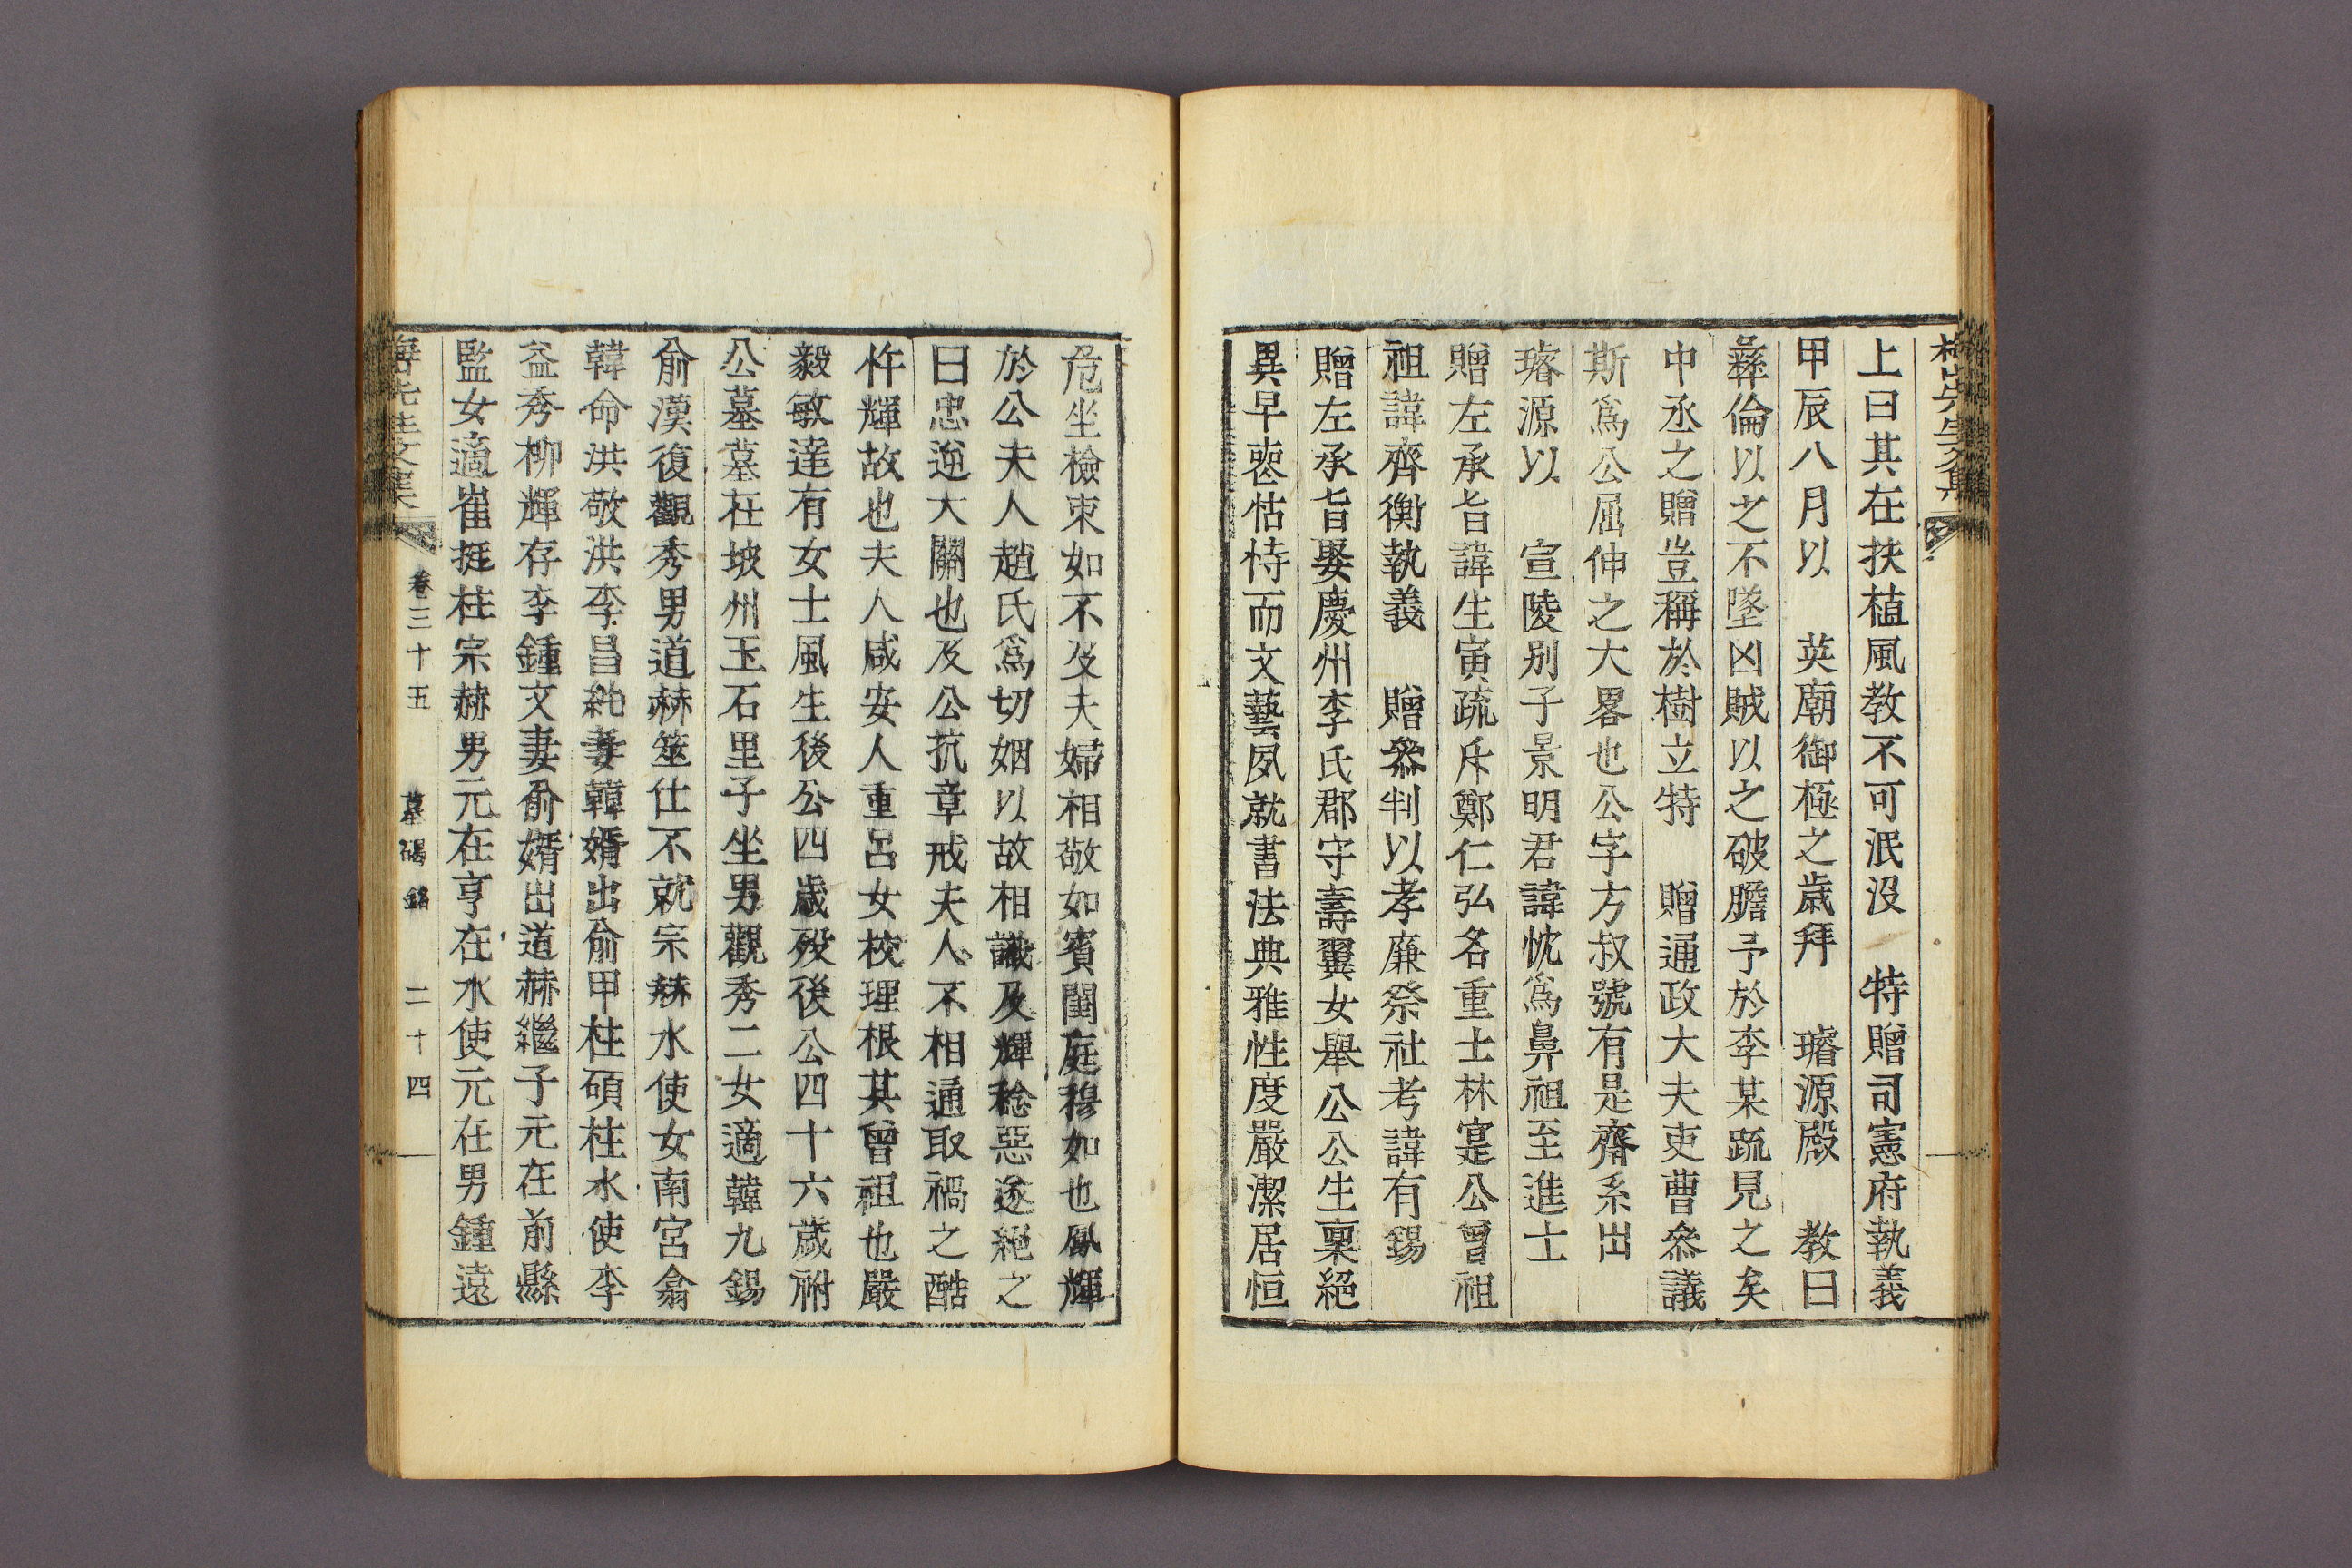 上曰其在扶植風教不可泯沒　特贈司憲府執義
甲辰八月以　英廟御極之歲拜　璿源殿　教曰
彝倫以之不墜凶賊以之破膽予於李某疏見之矣
中丞之贈豈稱於樹立特　贈通政大夫吏曹叅議
斯爲公屈伸之大畧也公字方叔號有是齋系出
璿源以　宣陵別子景明君諱忱爲鼻祖至進士
贈左承旨諱生寅疏斥鄭仁弘名重士林寔公曾祖
祖諱齊衡執義　贈叅判以孝廉祭社考諱有錫
贈左承旨娶慶州李氏郡守壽翼女舉公公生稟絕
異早喪怙恃而文藝夙就書法典雅性度嚴潔居恒
危坐檢束如不及夫婦相敬如賓閨庭穆如也鳳輝
於公夫人趙氏爲切姻以故相識及輝稔惡遂絕之
曰忠逆大關也及公抗章戒夫人不相通取禍之酷
忤輝故也夫人咸安人重呂女校理根其曾祖也嚴
毅敏達有女士風生後公四歲歿後公四十六歲祔
公墓墓在坡州玉石里子坐男觀秀二女適韓九錫
俞漢復觀秀男道赫筮仕不就宗赫水使女南宮翕
韓命洪敬洪李昌純妻韓婿出俞甲柱碩柱水使李
益秀柳輝存李鍾文妻俞婿出道赫繼子元在前縣
監女適崔挺柱宗赫男元在亨在水使元在男鍾遠
卷三十五　墓碣銘　二十四